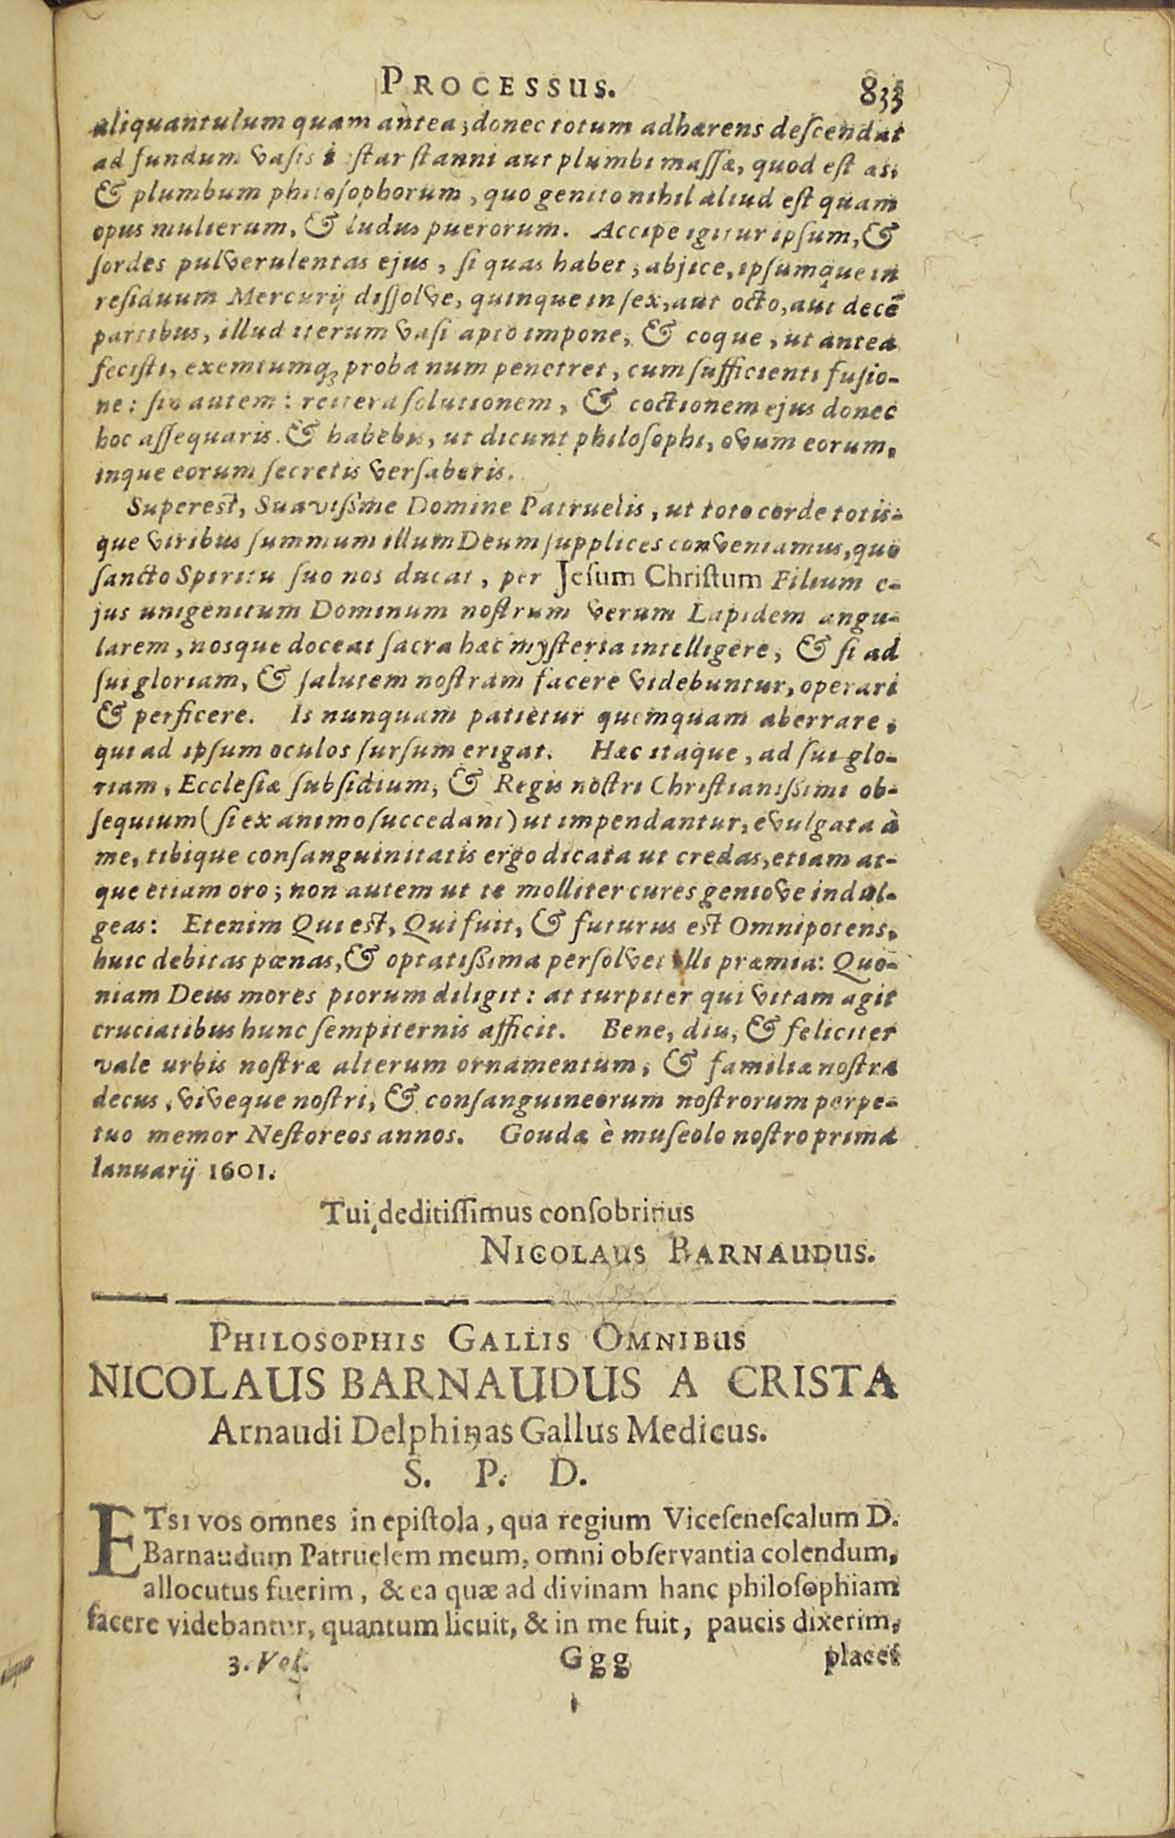 PROCESSUS. 833
aliquantulum quam antea; donec totum adhærens deſcendat
ad fundum vaſis iſtar ſtanni aut plumbi maſſæ, quod eſt æs,
& plumbum philoſophorum, quo genito nihil aliud eſt quam
opus mulierum, & ludus puerorum. Accipe igitur ipſum, &
ſordes pulverulentas ejus, ſi quas habet, abjice, ipſumque in
reſiduum Mercurij diſſolve, quinque in ſex, aut octo, aut decē
partibus, illud iterum vaſi apto impone, & coque, ut antea
feciſti, exemtumq; proba num penetret, cum ſufficienti fuſio-
ne: ſin autem: reitera ſolutionem, & coctionem ejus donec
hoc aſſequaris. & habebis, ut dicunt philoſophi, ovum eorum,
inque eorum ſecretis verſaberis.
Supereſt, Suaviſſme Domine Patruelis, ut toto corde totiſ-
que viribus ſummum illum Deum ſupplices conveniamus, quo
ſancto Spiritu ſuo nos ducat, per Jeſum Chriſtum Filium e-
jus unigenitum Dominum noſtrum verum Lapidem angu-
larem, nosque doceat ſacra hæc myſteria intelligere, & ſi ad
ſui gloriam, & ſalutem noſtram facere videbuntur, operari
& perficere. Is nunquam patietur quemquam aberrare,
qui ad ipſum oculos ſurſum erigat. Hæc itaque, ad ſui glo-
riam, Eccleſiæ ſubſidium, & Regis noſtri Chriſtianiſſimi ob-
ſequium (ſi ex animo ſuccedant) ut impendantur, evulgata à
me, tibique conſanguinitatis ergo dicata ut credas, etiam at-
que etiam oro; non autem ut te molliter cures geniove indul-
geas: Etenim Qui eſt, Qui fuit, & futurus eſt Omnipotens,
huic debitas pœnas, & optatiſſima perſolvet illi præmia: Quo-
niam Deus mores piorum diligit: at turpiter qui vitam agit
cruciatibus hunc ſempiternis afficit. Bene, diu, & feliciter
vale urbis noſtræ alterum ornamentum, & familiæ noſtræ
decus, viveque noſtri, & conſanguineorum noſtrorum perpe-
tuo memor Neſtoreos annos. Goudæ è muſeolo noſtro prima
Ianuarij 1601.
Tui deditiſſimus conſobrinus
NICOLAUS BARNAUDUS.
PHILOSOPHIS GALLIS OMNIBUS
NICOLAUS BARNAUDUS A CRISTA
Arnaudi Delphinas Gallus Medicus.
S. P. D.
ETSI vos omnes in epiſtola, qua regium Viceſeneſcalum D.
Barnaudum Patruelem meum, omni obſervantia colendum,
allocutus fuerim, & ea quæ ad divinam hanc philoſophiam
facere videbantur, quantum licuit, & in me fuit, paucis dixerim,
3. Vol. Ggg placet